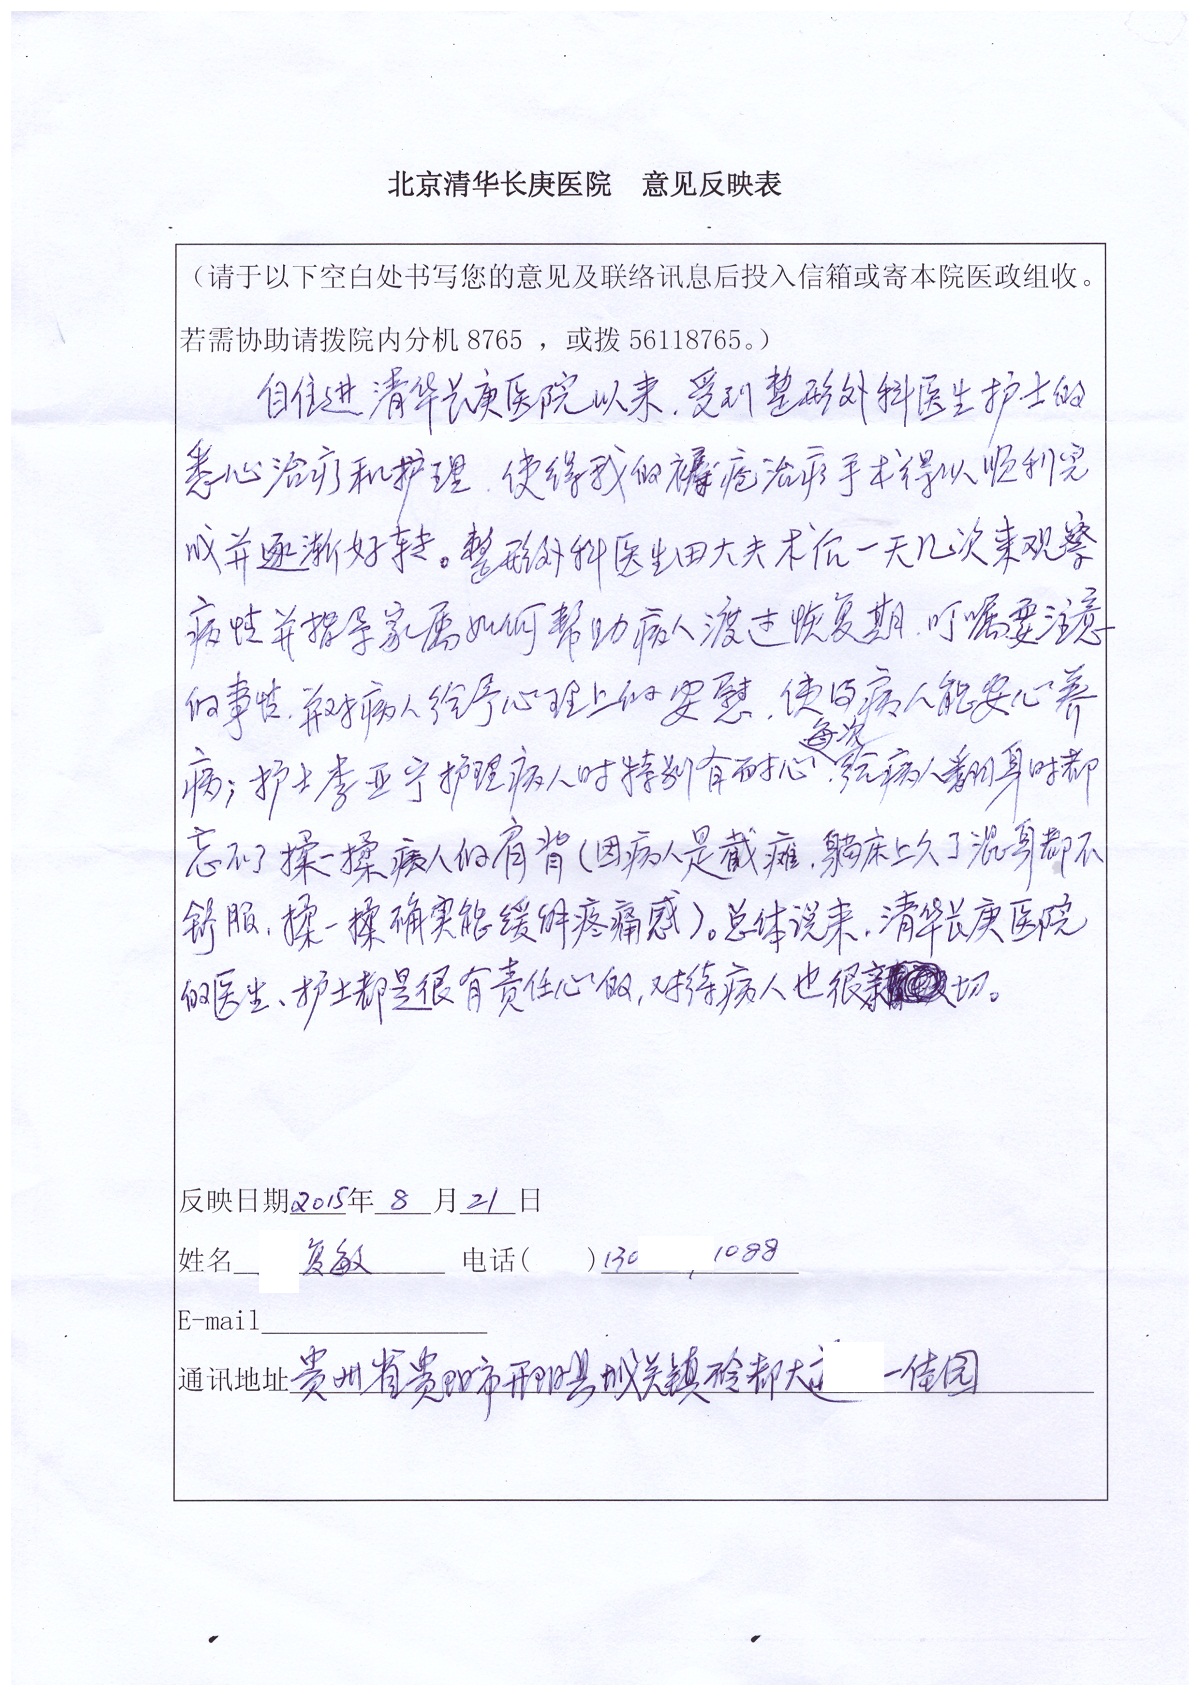 北京清华长庚医院 意见反映表
（请于以下空白处书写您的意见及联络讯息后投入信箱或寄本院医政组收。
若需协助请拨院内分机8765 ，或拨56118765。）
自住进清华长庚医院以来，受到整形外科医生护士的
悉心治疗和护理，使得我的褥疮治疗手术得以顺利完
成并逐渐好转。整形外科医生田大夫术后一天几次来观察
病情并指导家属如何帮助病人渡过恢复期，叮嘱要注意
的事情，并对病人给予心理上的安慰，使得病人能安心养
病；护士李亚宁护理病人时特别有耐心，每次给病人翻身时都
忘不了揉一揉病人的肩背（因病人是截瘫，躺床上久了混身都不
舒服，揉一揉确实能缓解疼痛感）。总体说来，清华长庚医院
的医生、护士都是很有责任心的，对待病人也很亲切。
反映日期2015年 8 月 21 日
姓名 复敏 电话( )130 1088
E-mail
通讯地址贵州省贵阳市开阳县城关镇磷都大道 一佳园